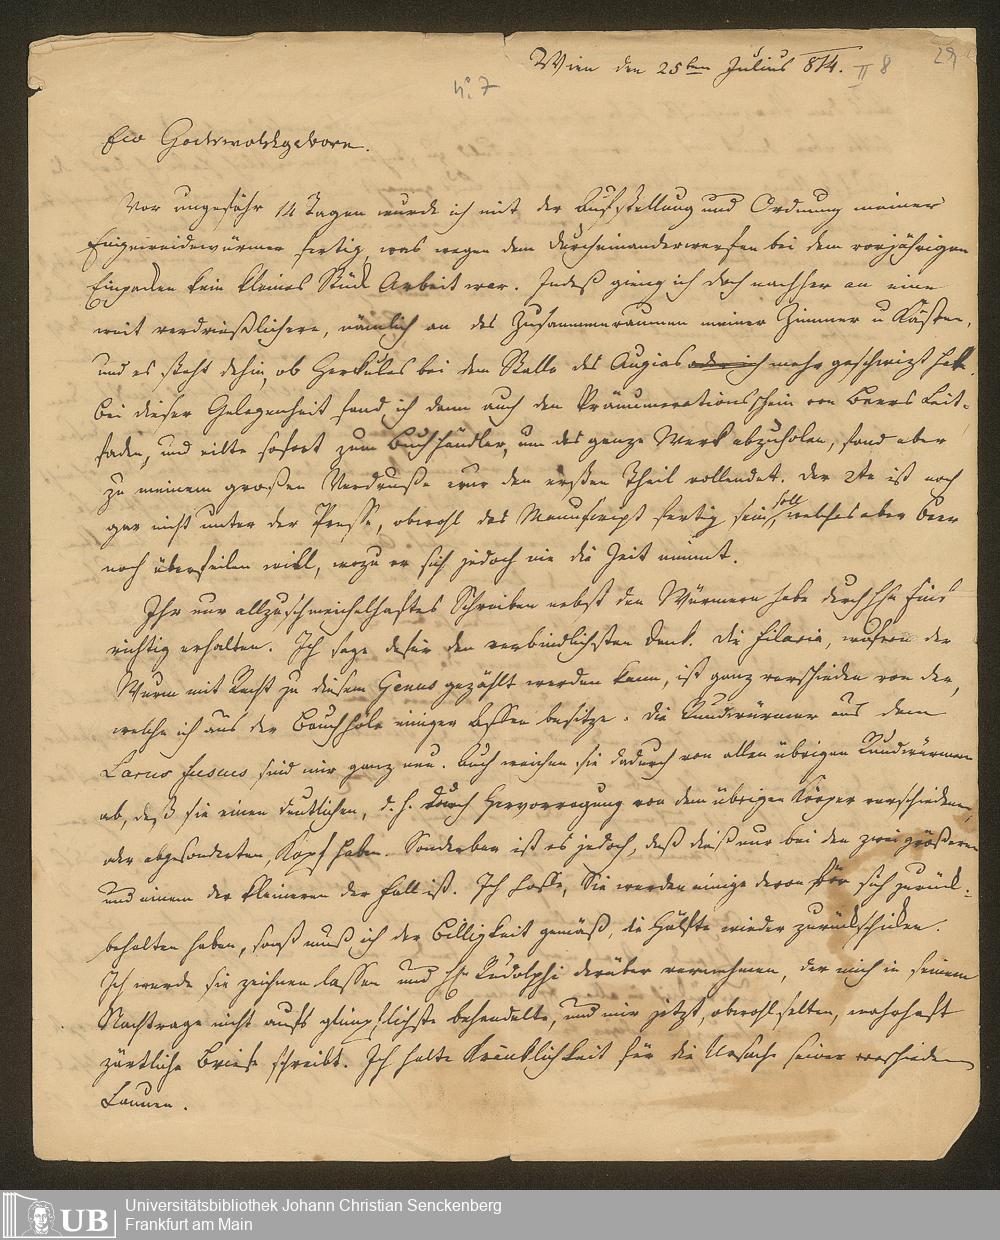 Wien den 25ten Julius 814. II 8 29
N. 7
Ew Hochwohlgeborn.
Vor ungefähr 14 Tagen wurde ich mit der Aufstellung und Ordnung meiner
Eingeweidewürmer fertig, was wegen dem Durcheinanderwerfen bei dem vorjährigen
Einpacken kein kleines Stück Arbeit war. Indeß gieng ich doch nachher an eine
weit verdrießlichere, nämlich an das Zusammenraumen meiner Zimmer u Kästen,
und es steht dahin, ob Herkules bei dem Stalle des Augias oder ich mehr geschwizt hat.
Bei dieser Gelegenheit fand ich denn auch den Pränumerationsschein von Beers Leit-
faden, und eilte sofort zum Buchhändler, um das ganze Werk abzuholen, fand aber
zu meinem großen Verdruße nur den ersten Theil vollendet. Der 2te ist noch
gar nicht unter der Presse, obwohl das Manuscript fertig sein soll, welches aber Beer
noch überfeilen will, wozu er sich jedoch nie die Zeit nimmt.
Ihr nur allzuschmeichelhaftes Schreiben nebst den Würmern habe durch Hn
richtig erhalten. Ich sage dafür den verbindlichsten Dank. Die Filaria, wofern der
Wurm mit Recht zu diesem Genus gezählt werden kann, ist ganz verschieden von der,
welche ich aus der Bauchhöle einiger Affen besitze. Die Rundwürmer aus dem
Larus fuscus sind mir ganz neu. Auch weichen sie dadurch von allen übrigen Rundwürmern
ab, daß sie einen deutlichen, d. h. durch Hervorragung von dem übrigen Körper verschiedenen,
oder abgesonderten, Kopf haben. Sonderbar ist es jedoch, daß dieß nur bei den zwei größeren
und einem der kleineren der Fall ist. Ich hoffe, Sie werden einige davon für sich zurück-
behalten haben, sonst muß ich der Billigkeit gemäß, die Hälfte wieder zurückschicken.
Ich werde sie zeichnen lassen und H. Rudolphi darüber vernehmen, der mich in seinem
Nachtrage nicht aufs glimpflichste behandelte, und mir jetzt, obwohl selten, wahrhaft
zärtliche Briefe schreibt. Ich halte Kränklichkeit für die Ursache seiner verschiedenen
Launen.
UB
Universitätsbibliothek Johann Christian Senckenberg
Frankfurt am Main